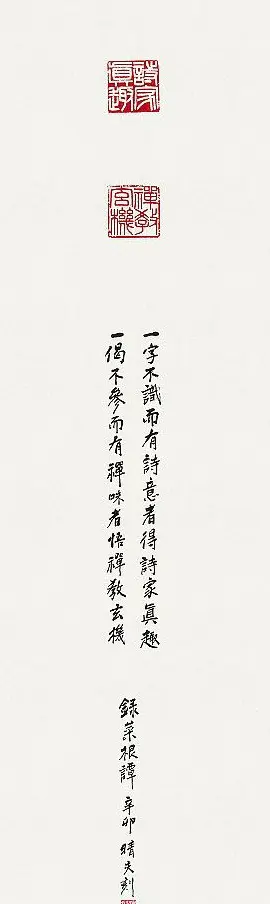 詩家
眞趣
禪教
玄機
一字不識而有詩意者得詩家眞趣
一偈不參而有禪味者悟禪教玄機
錄菜根譚 辛卯 晴夫刻